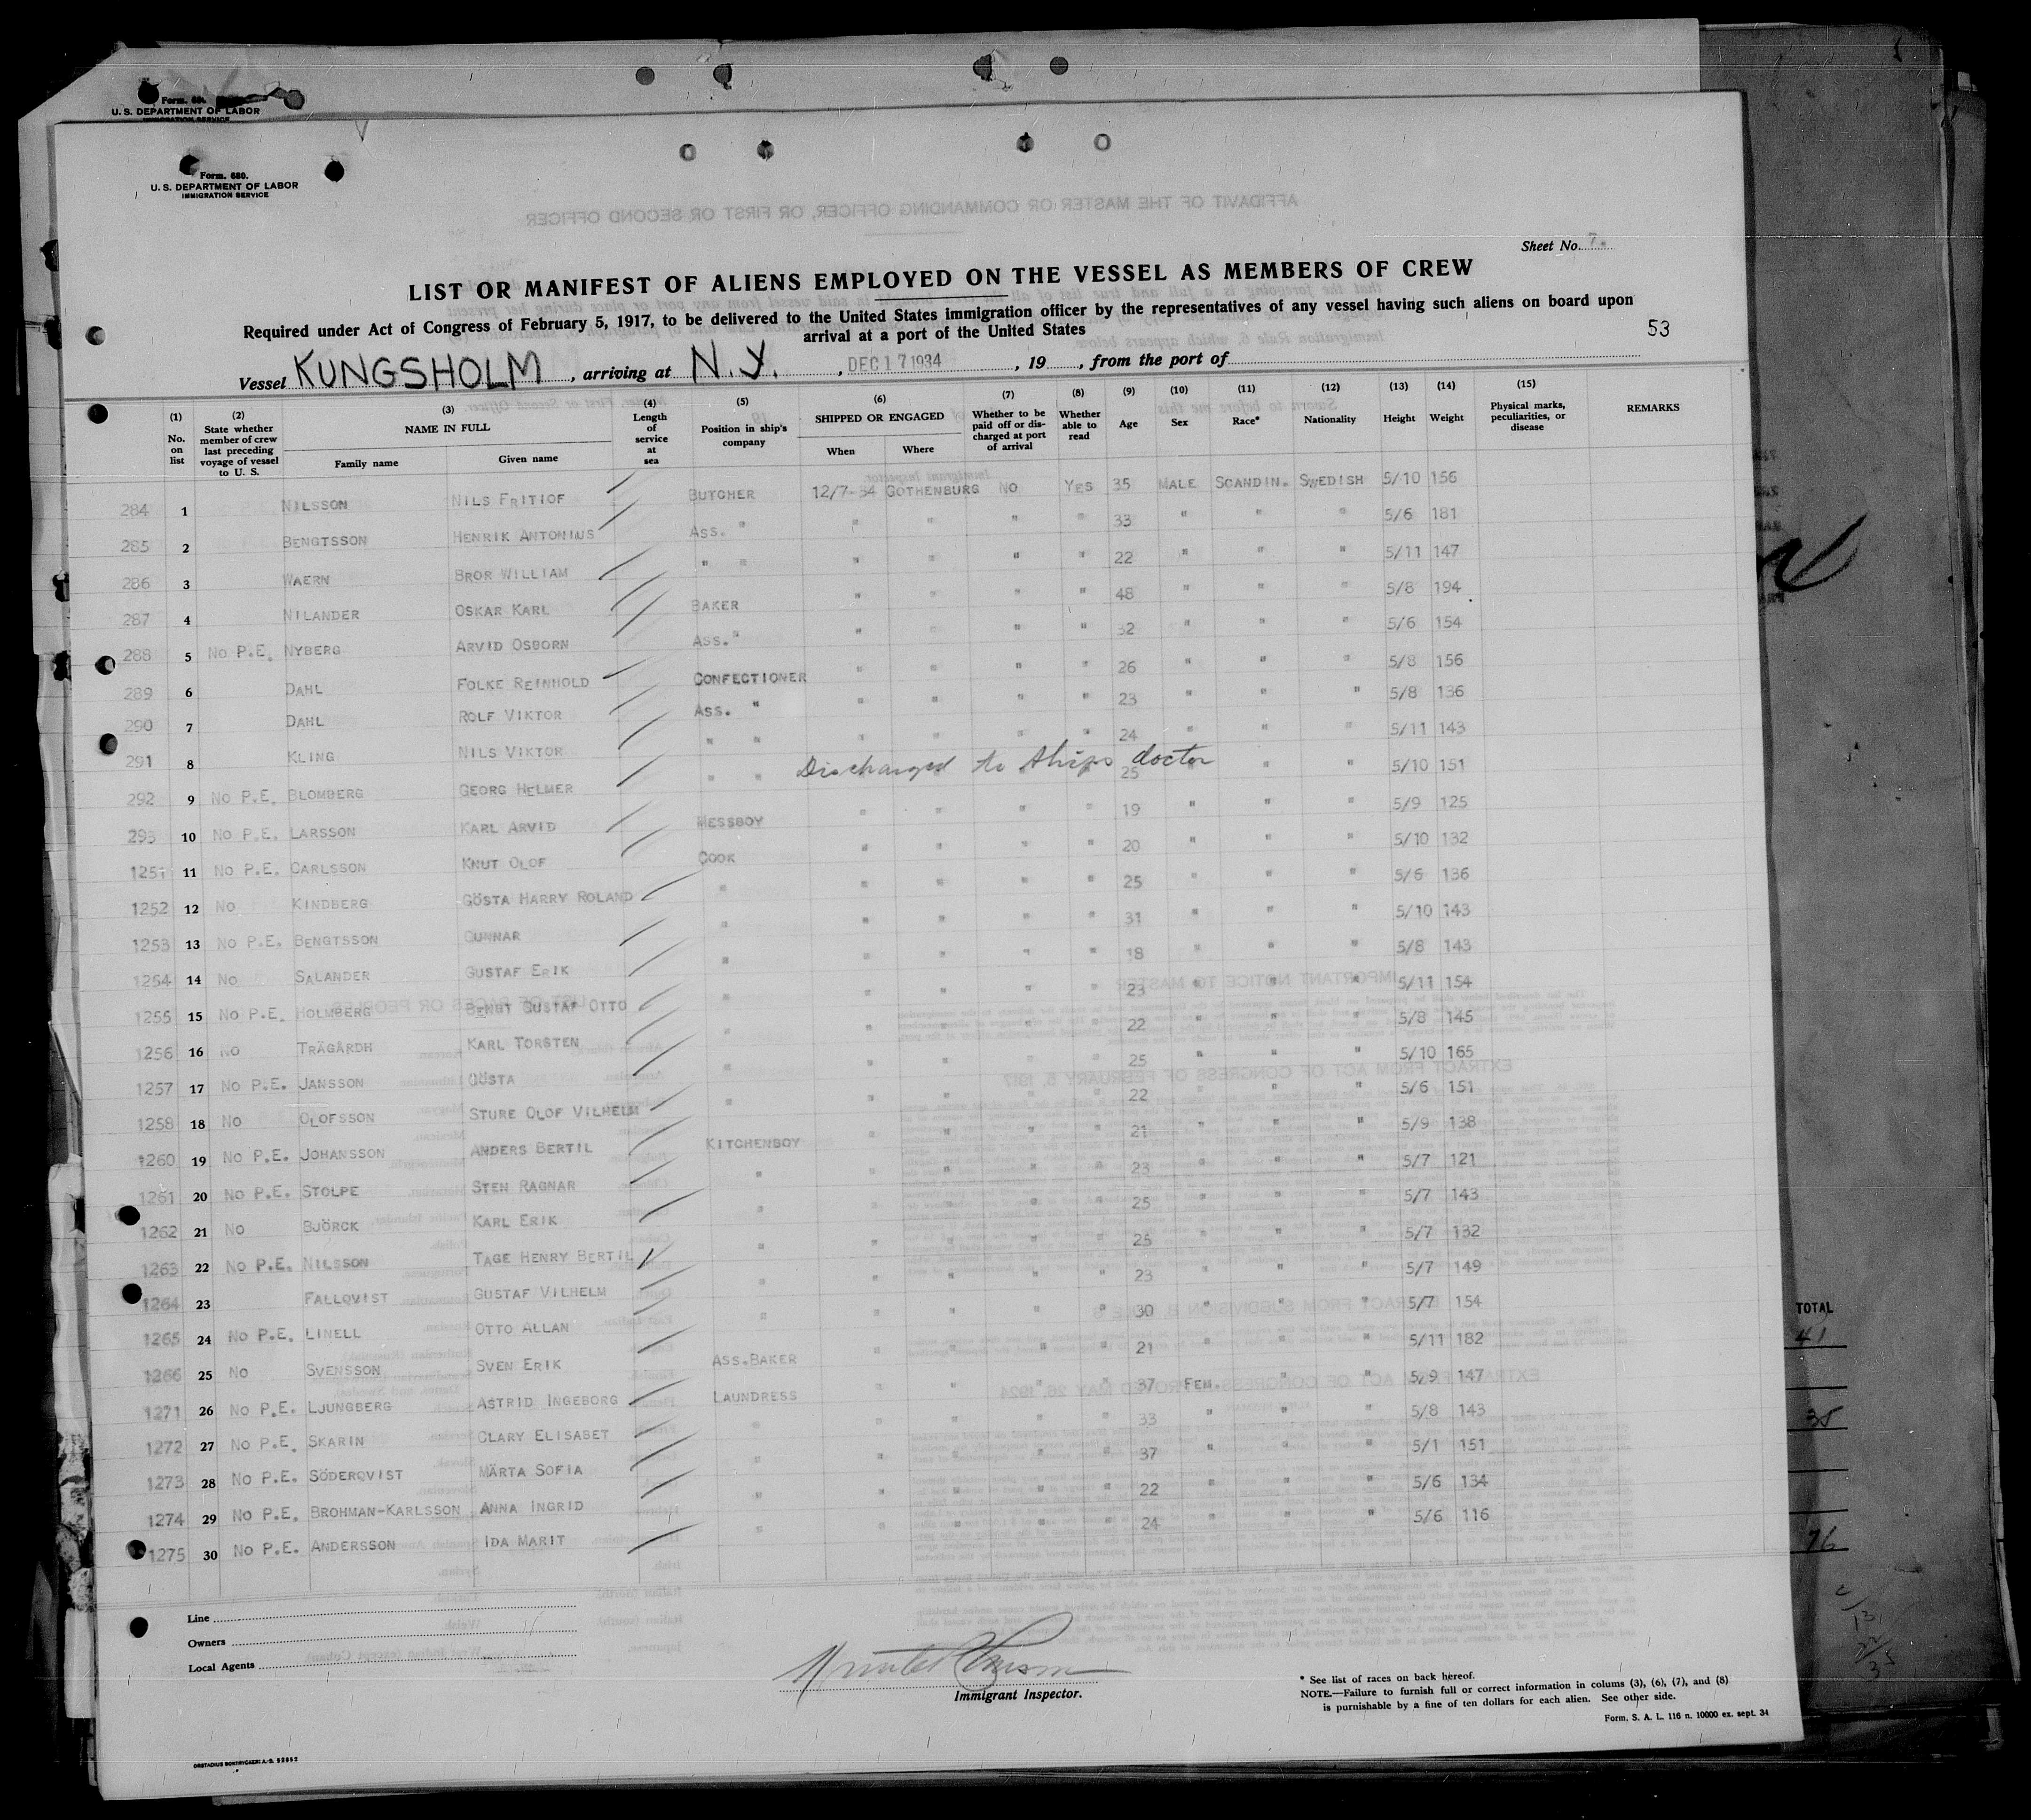 Form. 680.
U. S. DEPARTMENT OF LABOR
IMMIGRATION SERVICE
Form. 680.
U. S. DEPARTMENT OF LABOR
IMMIGRATION SERVICE
AFFIDAVIT OF THE MASTER OR COMMANDING OFFICER, OR FIRST OR SECOND OFFICER
Sheet No. 7.
LIST OR MANIFEST OF ALIENS EMPLOYED ON THE VESSEL AS MEMBERS OF CREW
Required under Act of Congress of February 5, 1917, to be delivered to the United States immigration officer by the representatives of any vessel having such aliens on board upon
arrival at a port of the United States
53
Vessel KUNGSHOLM, arriving at N.Y., DEC 17 1934, 19, from the port of
(1) No. on list (2) State whether member of crew last preceding voyage of vessel to U. S. (3) NAME IN FULL Family name Given name (4) Length of service at sea (5) Position in ship's company (6) SHIPPED OR ENGAGED When Where (7) Whether to be paid off or discharged at port of arrival (8) Whether able to read (9) Age (10) Sex (11) Race* (12) Nationality (13) Height (14) Weight (15) Physical marks, peculiarities, or disease REMARKS
284 1 NILSSON NILS FRITIOF BUTCHER 12/7-34 GOTHENBURG NO YES 35 MALE SCANDIN. SWEDISH 5/10 156
285 2 BENGTSSON HENRIK ANTONIUS ASS. " " " " " 33 " " " 5/6 181
286 3 WAERN BROR WILLIAM " " " " " " 22 " " " 5/11 147
287 4 NILANDER OSKAR KARL BAKER " " " " 48 " " " 5/8 194
288 5 NO P.E. NYBERG ARVID OSBORN ASS. " " " " " 32 " " " 5/6 154
289 6 DAHL FOLKE REINHOLD CONFECTIONER " " " " 26 " " " 5/8 156
290 7 DAHL ROLF VIKTOR ASS. " " " " " 23 " " " 5/8 136
291 8 KLING NILS VIKTOR " " " " " " 24 " " " 5/11 143
292 9 NO P.E. BLOMBERG GEORG HELMER " " Discharged to ships doctor 25 " " " 5/10 151
293 10 NO P.E. LARSSON KARL ARVID MESSBOY " " " " 19 " " " 5/9 125
1251 11 NO P.E. CARLSSON KNUT OLOF COOK " " " " 20 " " " 5/10 132
1252 12 NO KINDBERG GÖSTA HARRY ROLAND " " " " " 25 " " " 5/6 136
1253 13 NO P.E. BENGTSSON GUNNAR " " " " " 31 " " " 5/10 143
1254 14 NO SALANDER GUSTAF ERIK " " " " " 18 " " " 5/8 143
1255 15 NO P.E. HOLMBERG BENGT GUSTAF OTTO " " " " " 23 " " " 5/11 154
1256 16 NO TRÄGÅRDH KARL TORSTEN " " " " " 22 " " " 5/8 145
1257 17 NO P.E. JANSSON GÖSTA " " " " " 25 " " " 5/10 165
1258 18 NO OLOFSSON STURE OLOF VILHELM " " " " " 22 " " " 5/6 151
1260 19 NO P.E. JOHANSSON ANDERS BERTIL KITCHENBOY " " " " 21 " " " 5/9 138
1261 20 NO P.E. STOLPE STEN RAGNAR " " " " " 23 " " " 5/7 121
1262 21 NO BJÖRCK KARL ERIK " " " " " 25 " " " 5/7 143
1263 22 NO P.E. NILSSON TAGE HENRY BERTIL " " " " " 25 " " " 5/7 132
1264 23 FALLQVIST GUSTAF VILHELM " " " " " 23 " " " 5/7 149
1265 24 NO P.E. LINELL OTTO ALLAN " " " " " 30 " " " 5/7 154
1266 25 NO SVENSSON SVEN ERIK ASS.BAKER " " " " 21 " " " 5/11 182
1271 26 NO P.E. LJUNGBERG ASTRID INGEBORG LAUNDRESS " " " " 37 FEM. " " 5/9 147
1272 27 NO P.E. SKARIN CLARY ELISABET " " " " " 33 " " " 5/8 143
1273 28 NO P.E. SÖDERQVIST MÄRTA SOFIA " " " " " 37 " " " 5/1 151
1274 29 NO P.E. BROHMAN-KARLSSON ANNA INGRID " " " " " 22 " " " 5/6 134
1275 30 NO P.E. ANDERSSON IDA MARIT " " " " " 24 " " " 5/6 116
Line
Owners
Local Agents
Immigrant Inspector.
* See list of races on back hereof.
NOTE.—Failure to furnish full or correct information in colums (3), (6), (7), and (8)
is purnishable by a fine of ten dollars for each alien. See other side.
Form. S. A. L. 116 n. 10000 ex. sept. 34
TOTAL
41
35
76